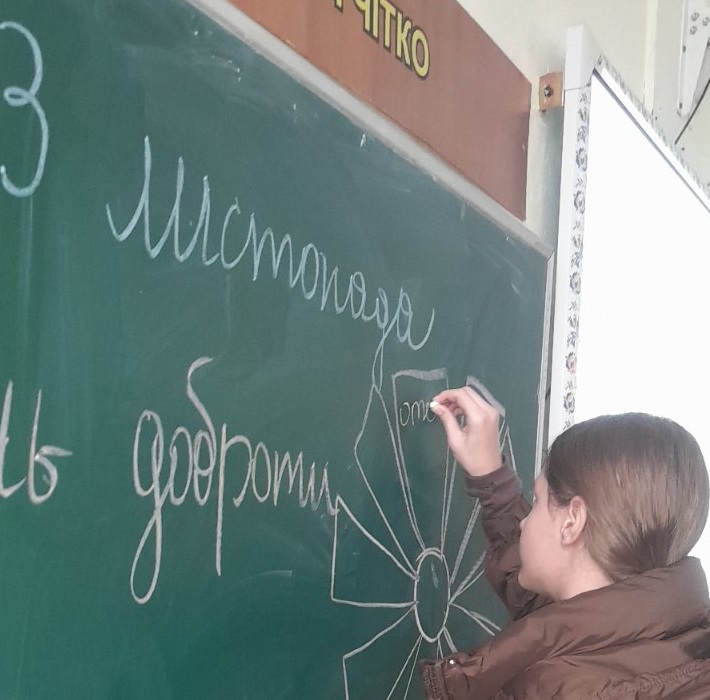 ЧІТКО
3 листопада
нь доброти